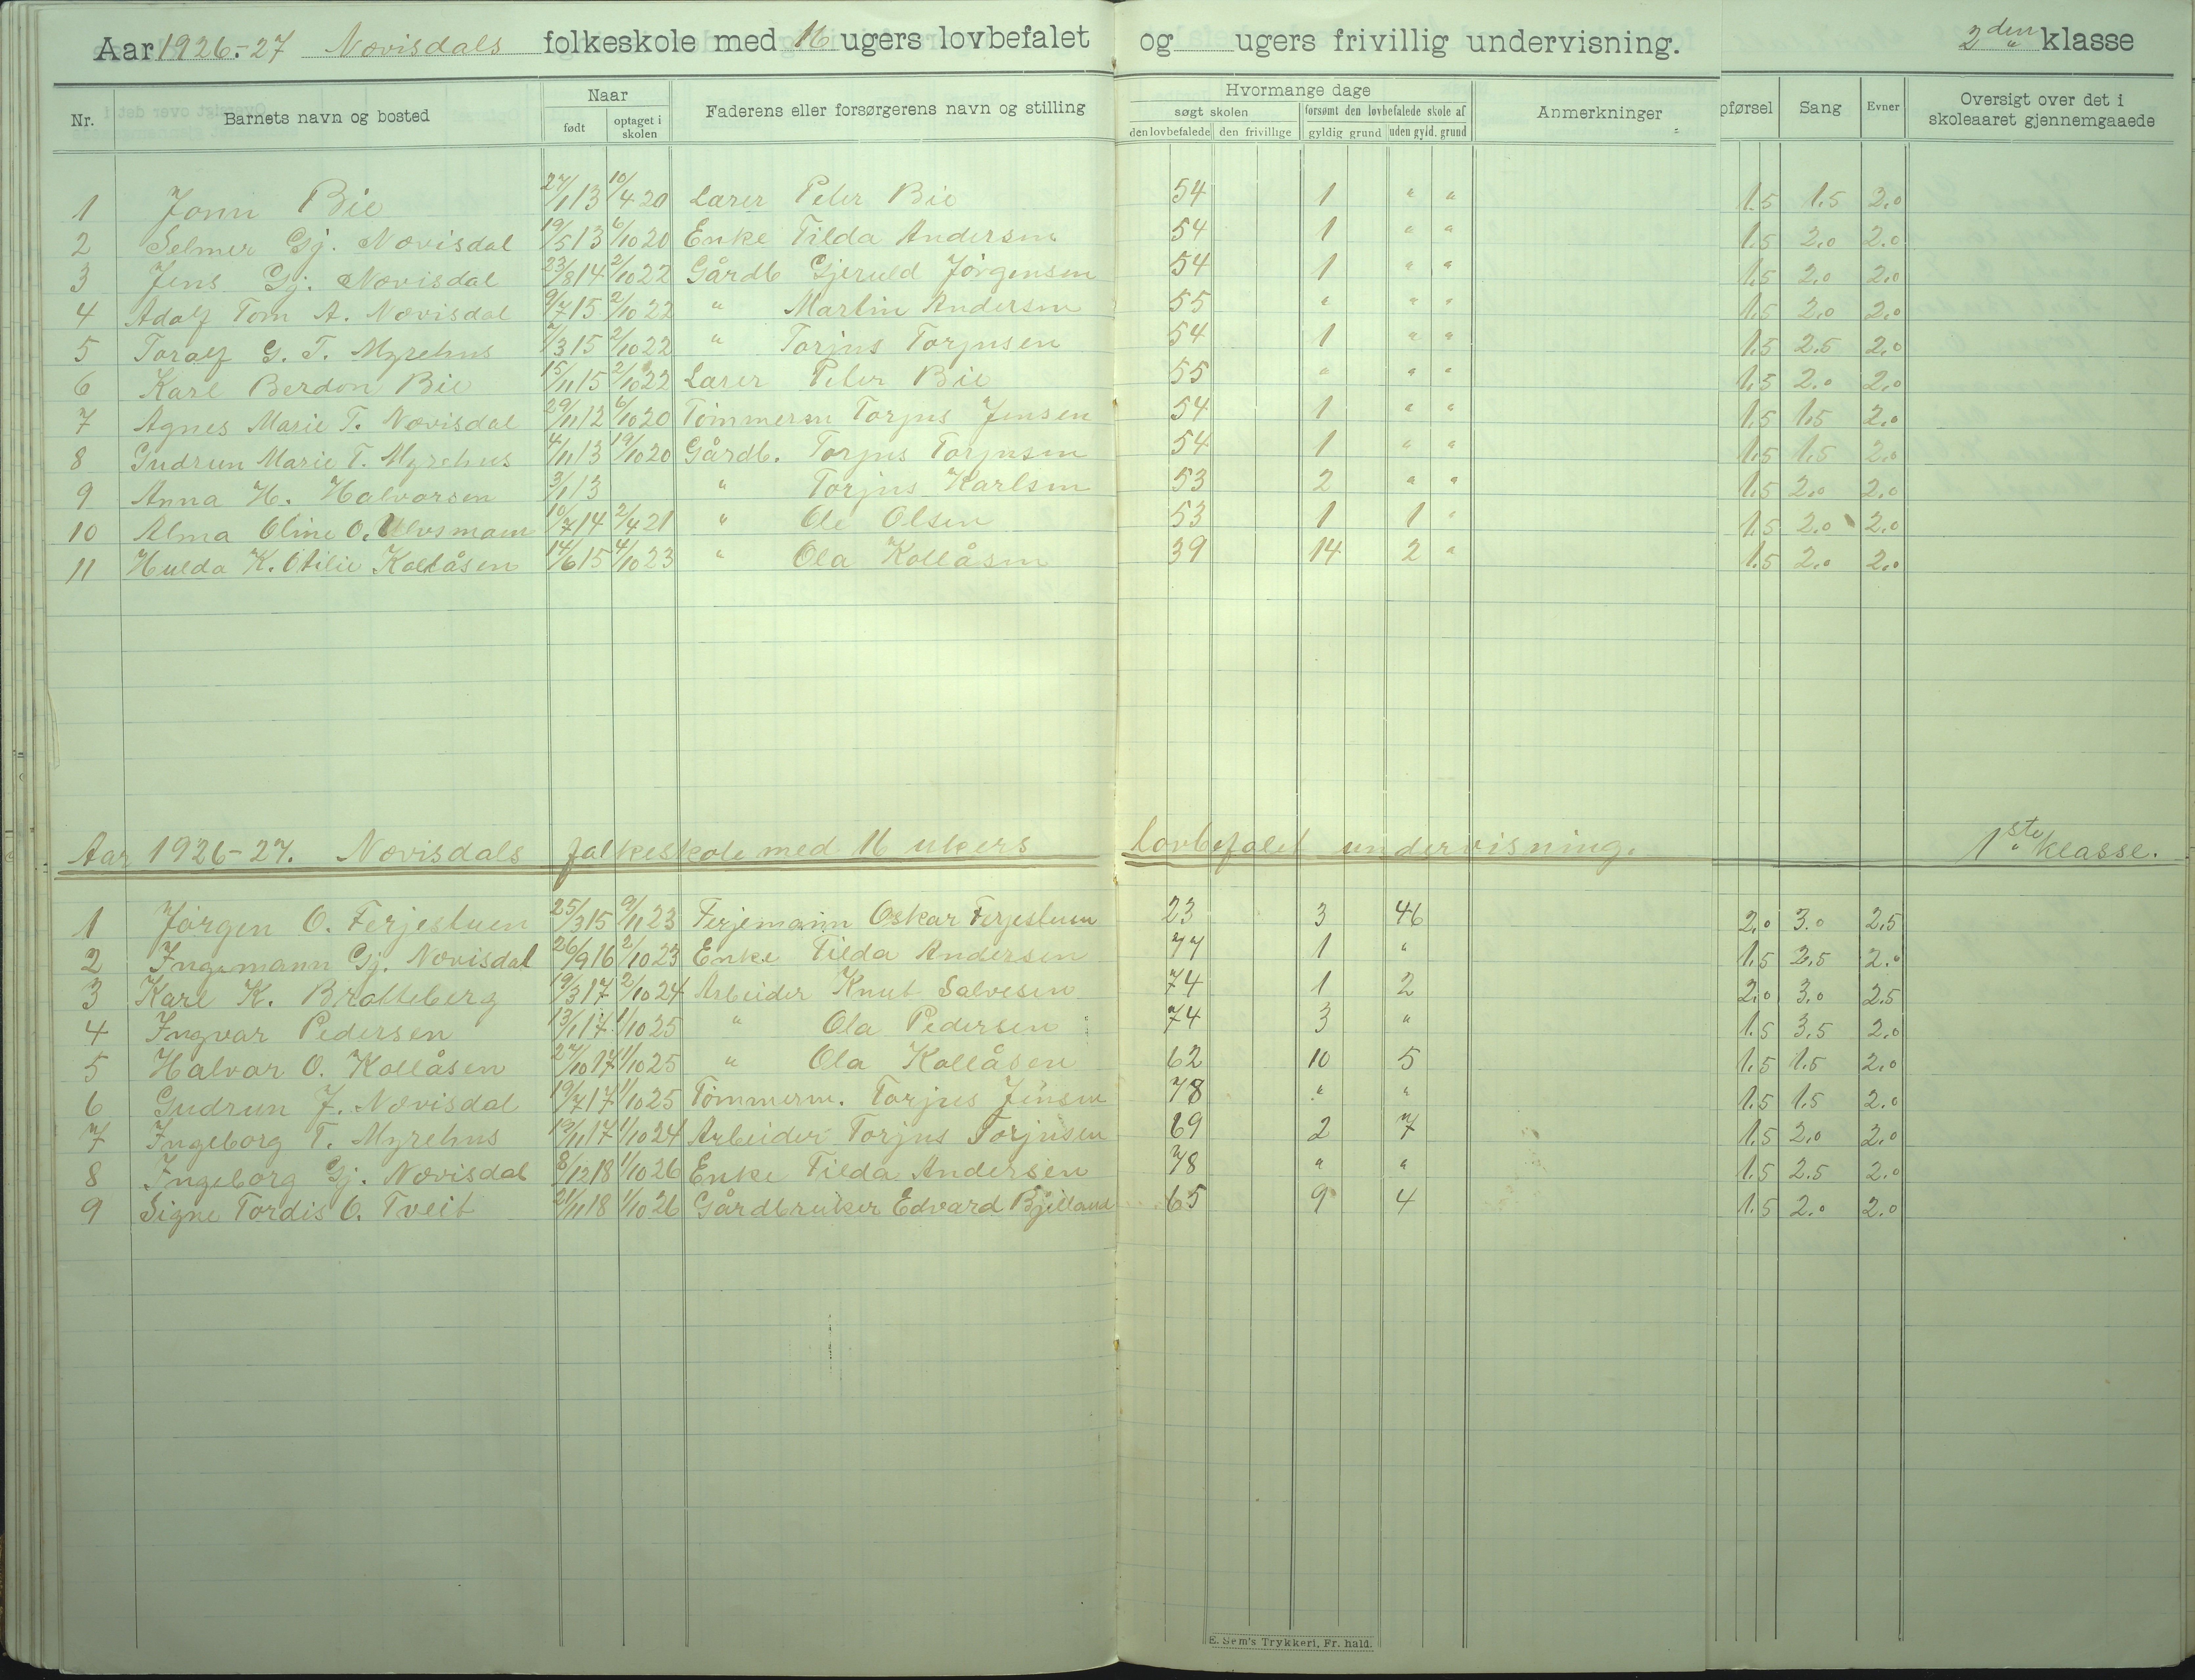 Aar 1926.-27 Nævisdals folkeskole med 16 ugers lovbefalet og ugers frivillig undervisning. 2den klasse
Nr. Barnets navn og bosted Naar født optaget i skolen Faderens eller forsørgerens navn og stilling Hvormange dage søgt skolen den lovbefalede den frivillige forsømt den lovbefalede skole af gyldig grund uden gyld. grund Anmerkninger pførsel Sang Evner Oversigt over det i skoleaaret gjennemgaaede
1 Jonn Bie 27/1 13 10/4 20 Lærer Peter Bie 54 1 " " 1.5 1.5 2.0
2 Selmer Gj. Nævisdal 19/5 13 6/10 20 Enke Tilda Andersen 54 1 " " 1.5 2.0 2.0
3 Jens Gj. Nævisdal 23/8 14 2/10 22 Gårdb Gjeruld Jörgensen 54 1 " " 1.5 2.0 2.0
4 Adolf Tom A. Nævisdal 9/7 15 2/10 22 " Martin Andersen 55 " " " 1.5 2.0 2.0
5 Toralf G. T. Myrehus 7/3 15 2/10 22 " Torjus Torjusen 54 1 " " 1.5 2.5 2.0
6 Karl Berdon Bie 15/11 15 2/10 22 Lærer Peter Bie 55 " " " 1.5 2.0 2.0
7 Agnes Marie T. Nævisdal 29/11 12 6/10 20 Tömmerm Torjus Jensen 54 1 " " 1.5 1.5 2.0
8 Gudrun Marie T. Myrehus 4/11 13 19/10 20 Gårdb. Torjus Torjusen 54 1 " " 1.5 1.5 2.0
9 Anna H. Halvorsen 3/1 13 " Torjus Karlsen 53 2 " " 1.5 2.0 2.0
10 Alma Oline O. Ulvsmoen 10/7 14 2/4 21 " Ole Olsen 53 1 1 " 1.5 2.0 2.0
11 Hulda K. Otilie Kollåsen 14/6 15 4/10 23 " Ola Kollåsen 39 14 2 " 1.5 2.0 2.0
Aar 1926-27. Nævisdals folkeskole med 16 ukers lovbefalet undervisning. 1ste klasse.
1 Jörgen O. Ferjestuen 25/3 15 9/11 23 Ferjemann Oskar Ferjestuen 23 3 46 2.0 3.0 2.5
2 Ingemann Gj. Nævisdal 26/9 16 2/10 23 Enke Tilda Andersen 77 1 " 1.5 2.5 2.0
3 Karl K. Bratteberg 19/3 17 2/10 24 Arbeider Knut Salvesen 74 1 2 2.0 3.0 2.5
4 Ingvar Pedersen 13/1 17 1/10 25 " Ola Pedersen 74 3 " 1.5 3.5 2.0
5 Halvor O. Kollåsen 27/10 17 1/10 25 " Ola Kollåsen 62 10 5 1.5 1.5 2.0
6 Gudrun J. Nævisdal 19/7 17 1/10 25 Tömmerm. Torjus Jensen 78 " " 1.5 1.5 2.0
7 Ingeborg T. Myrehus 19/11 17 1/10 24 Arbeider Torjus Torjusen 69 2 7 1.5 2.0 2.0
8 Ingeborg Gj. Nævisdal 8/12 18 1/10 26 Enke Tilda Andersen 78 " " 1.5 2.5 2.0
9 Signe Tordis O. Tveit 21/11 18 1/10 26 Gårdbruker Edvard Bjelland 65 9 4 1.5 2.0 2.0
E. Sem's Trykkeri, Fr. hald.